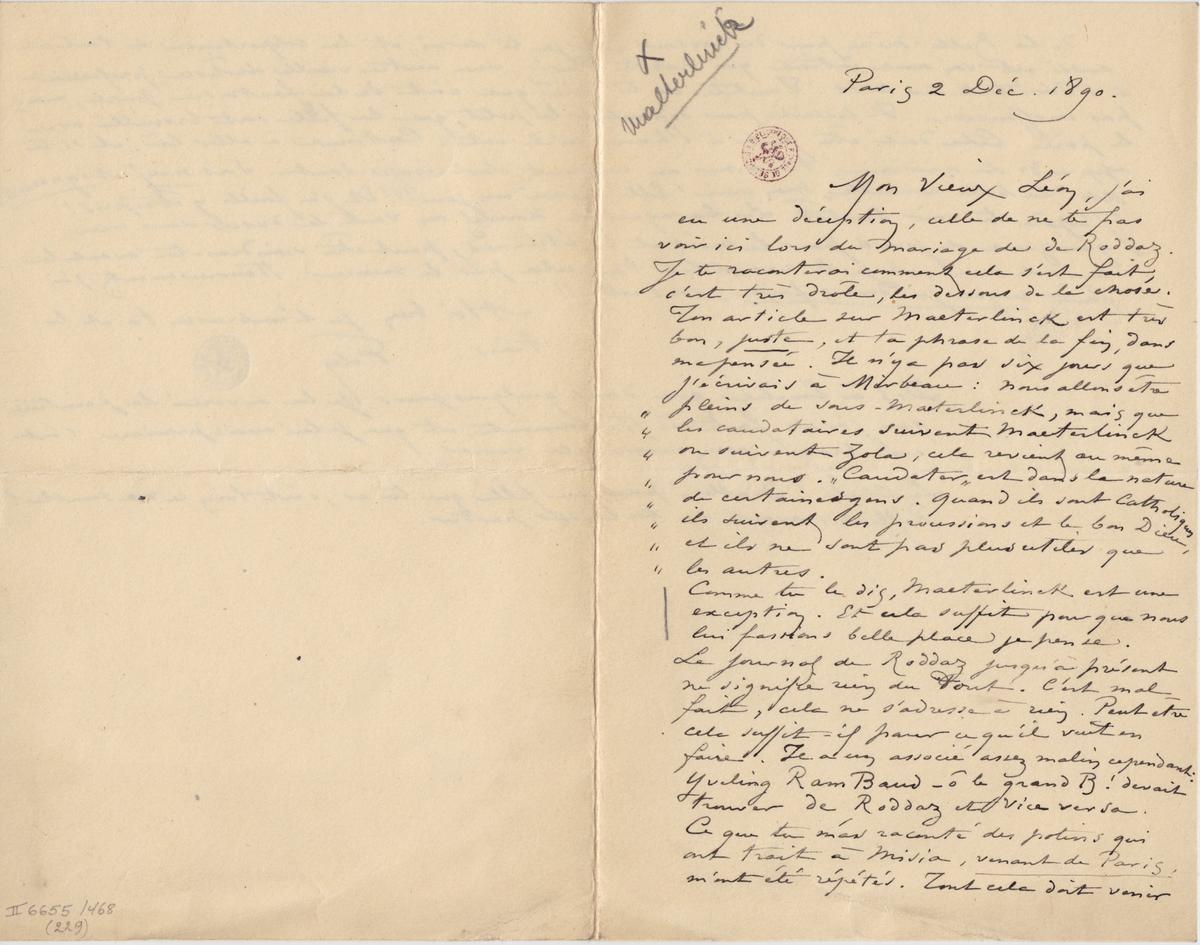 x
Maeterlinck
Paris 2 Déc. 1890.
Mon vieux Léon, j'ai
eu une déception, celle de ne te pas
voir ici lors du mariage de de Roddaz.
Je te raconterai comment cela s'est fait,
c'est très drôle, les dessous de la chose.
Ton article sur Maeterlinck est très
bon, juste, et ta phrase de la fin, dans
ma pensée. Il n'y a pas six jours que
j'écrivais à Mirbeau : nous allons être
" pleins de sous-Maeterlinck, mais que
" les caudataires suivent Maeterlinck
" ou suivent Zola, cela revient au même
" pour nous. "Caudater" est dans la nature
" de certaines gens. Quand ils sont Catholiques
" ils suivent les processions et le bon Dieu,
" et ils ne sont pas plus utiles que
" les autres.
Comme tu le dis, Maeterlinck est une
exception. Et cela suffit pour que nous
lui fassions belle place je pense.
Le journal de Roddaz jusqu'à présent
ne signifie rien du Tout. C'est mal
fait, cela ne s'adresse à rien. Peut être
cela suffit-il pour ce qu'il veut en
faire. Il a un associé assez malin cependant:
Yveling RamBaud - ô le grand B! devait
trouver de Roddaz et vice versa.
Ce que tu m'as raconté des potins qui
ont trait à Misia, venant de Paris,
m'ont été répétés. Tout cela doit venir
II 6655/468
(229)